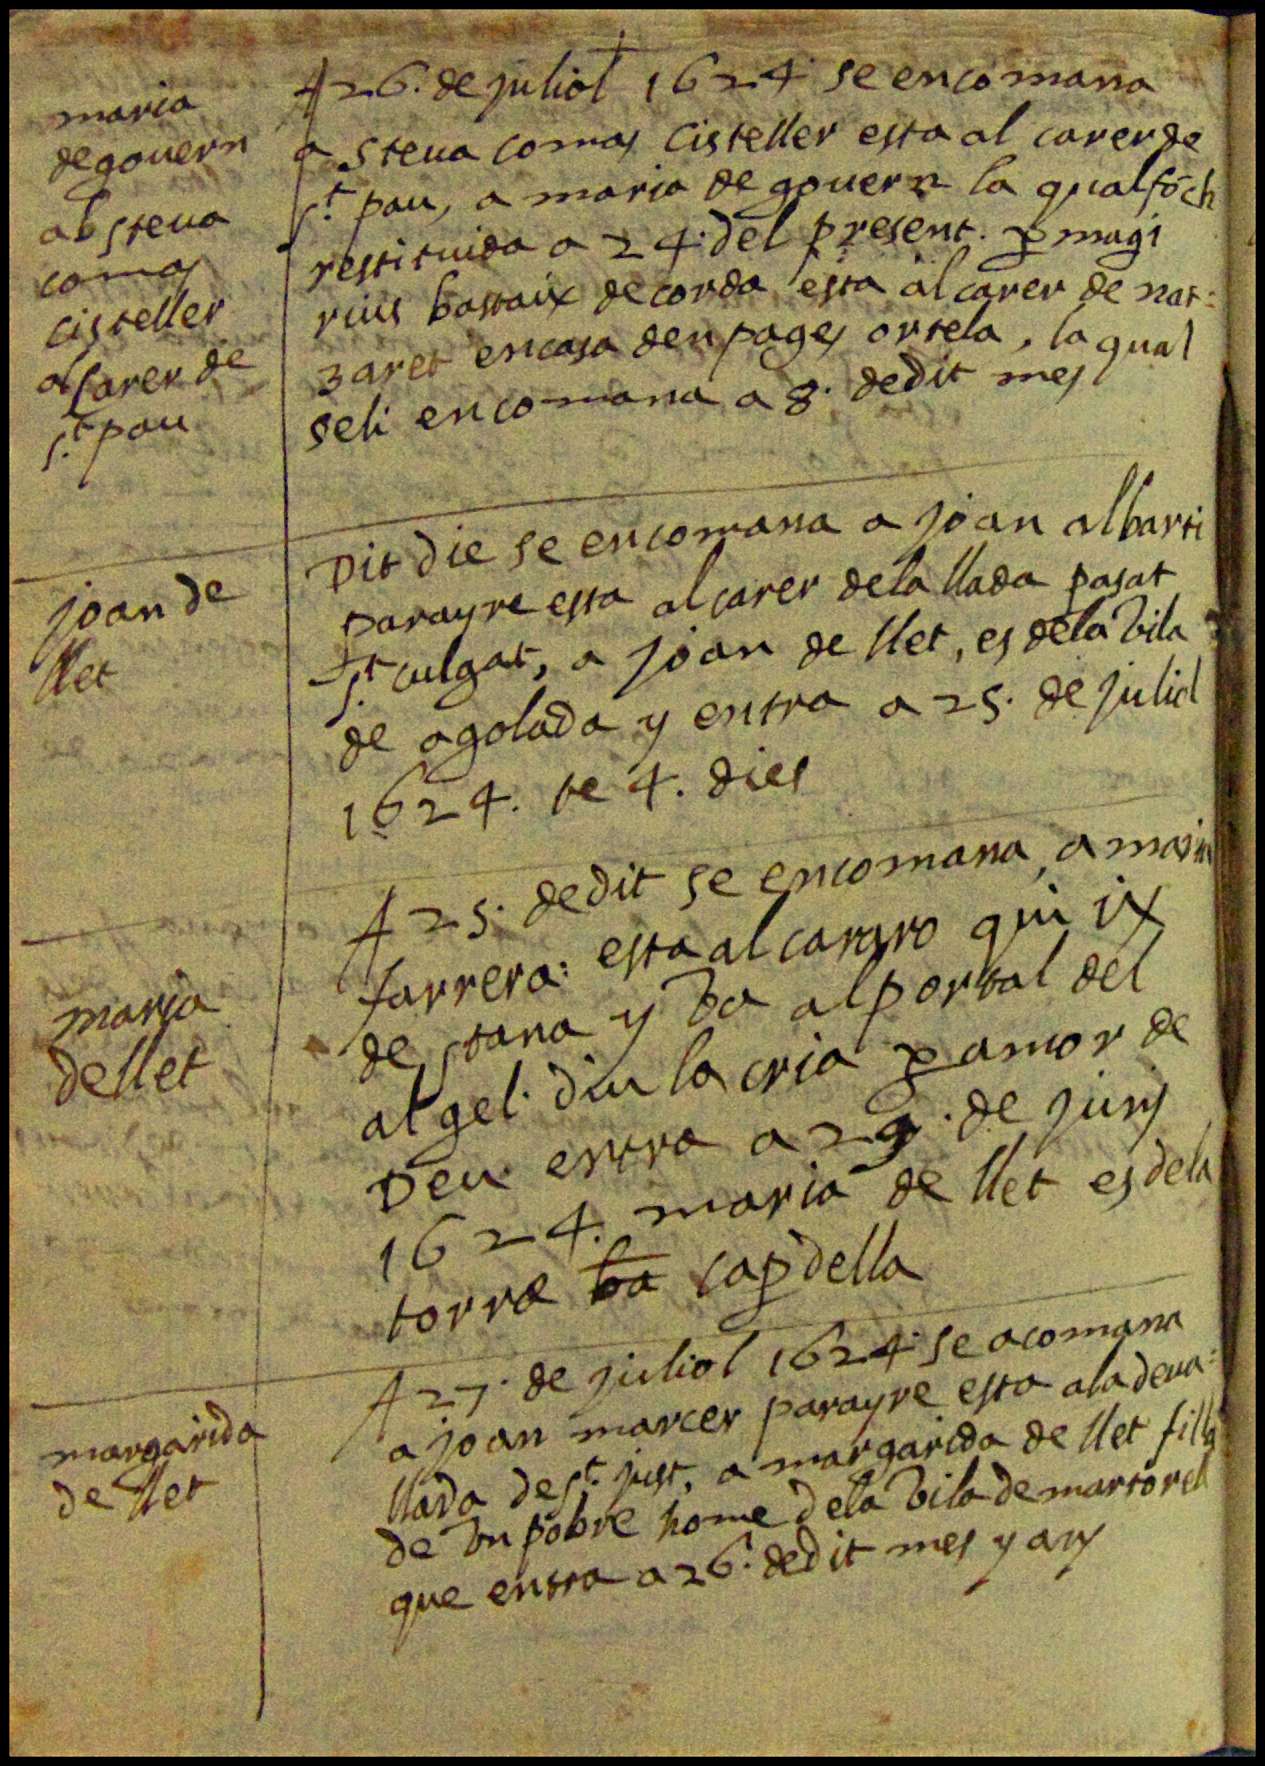 maria
de govern
ab steva
comas
cisteller
al carer de
s.t pau
A 26. de juliol 1624 se encomana
a steva comas cisteller esta al carer de
s.t pau, a maria de govern la qual fōch
restituida a 24. del present. p magi
rius bastaix de corda esta al carer de nat=
zaret en casa den pages ortela, la qual
seli encomana a 8. de dit mes
joan de
llet
Dit die se encomana a joan albarti
parayre esta al carer de la llada pasat
s.t culgat, a joan de llet, es de la vila
de agolada y entra a 25. de juliol
1624. te 4. dies
maria
de llet
A 25. de dit se encomana, a maria
farrera: esta al cararo qui ix
de stana y va al portal del
atgel. diu la cria p amor de
Deu entra a 29. de juny
1624. maria de llet es de la
torra ba capdella
margarida
de llet
A 27. de juliol 1624 se acomana
a joan marcer parayre esta a la deva=
llada de s.t just, a margarida de llet filla
de un pobre home de la vila de martorell
que entra a 26. de dit mes y any